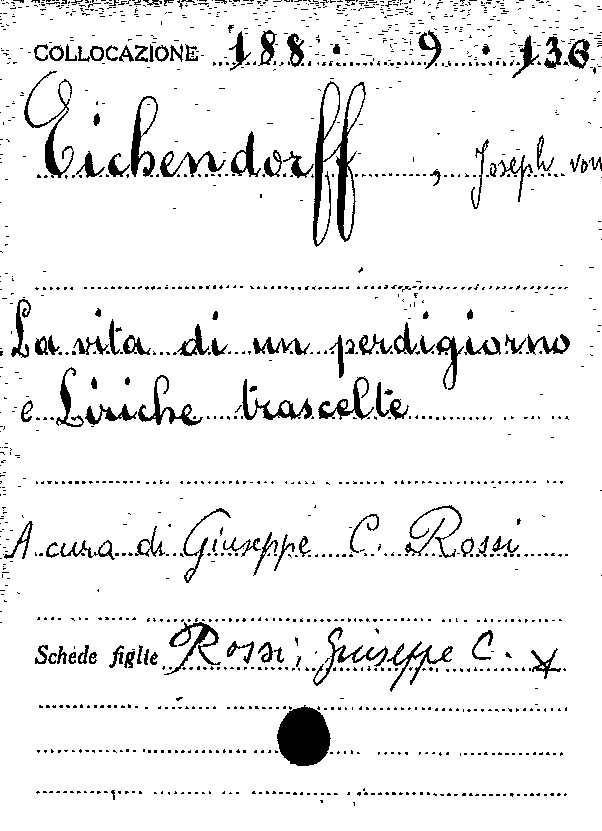 COLLOCAZIONE 188 . 9 . 136
Eichendorff , Joseph von
La vita di un perdigiorno
e Liriche trascelte
A cura di Giuseppe C. Rossi
Schede figlie Rossi, Giuseppe C.